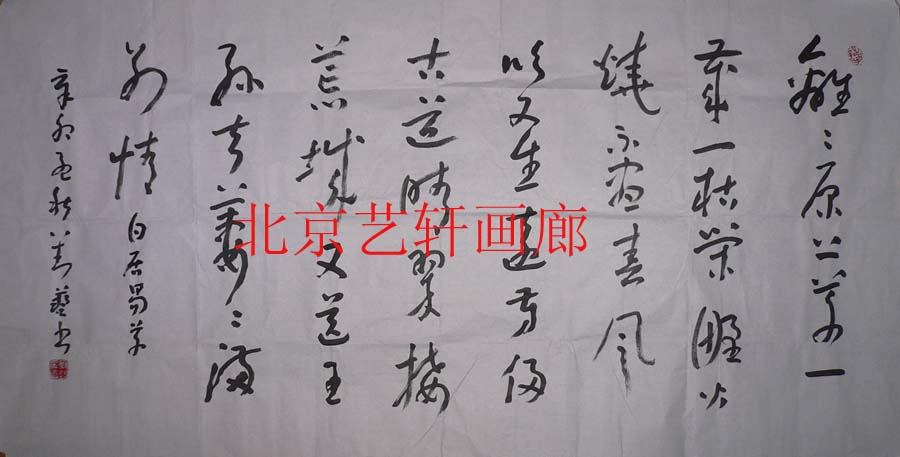 離〻原上草一
歲一枯榮野火
燒不盡春風
吹又生遠芳侵
古道晴翠接
荒城又送王
孫去萋〻滿
別情
白居易草
辛卯孟秋書
北京艺轩画廊